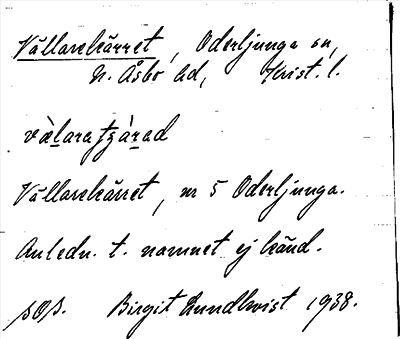 Vällarekärret, Oderljunga sn,
N. Åsbo hd, Krist. l.
Vällarekärret, nr 5 Oderljunga.
Anledn. t. namnet ej känd.
Birgit Lundkvist 1938.